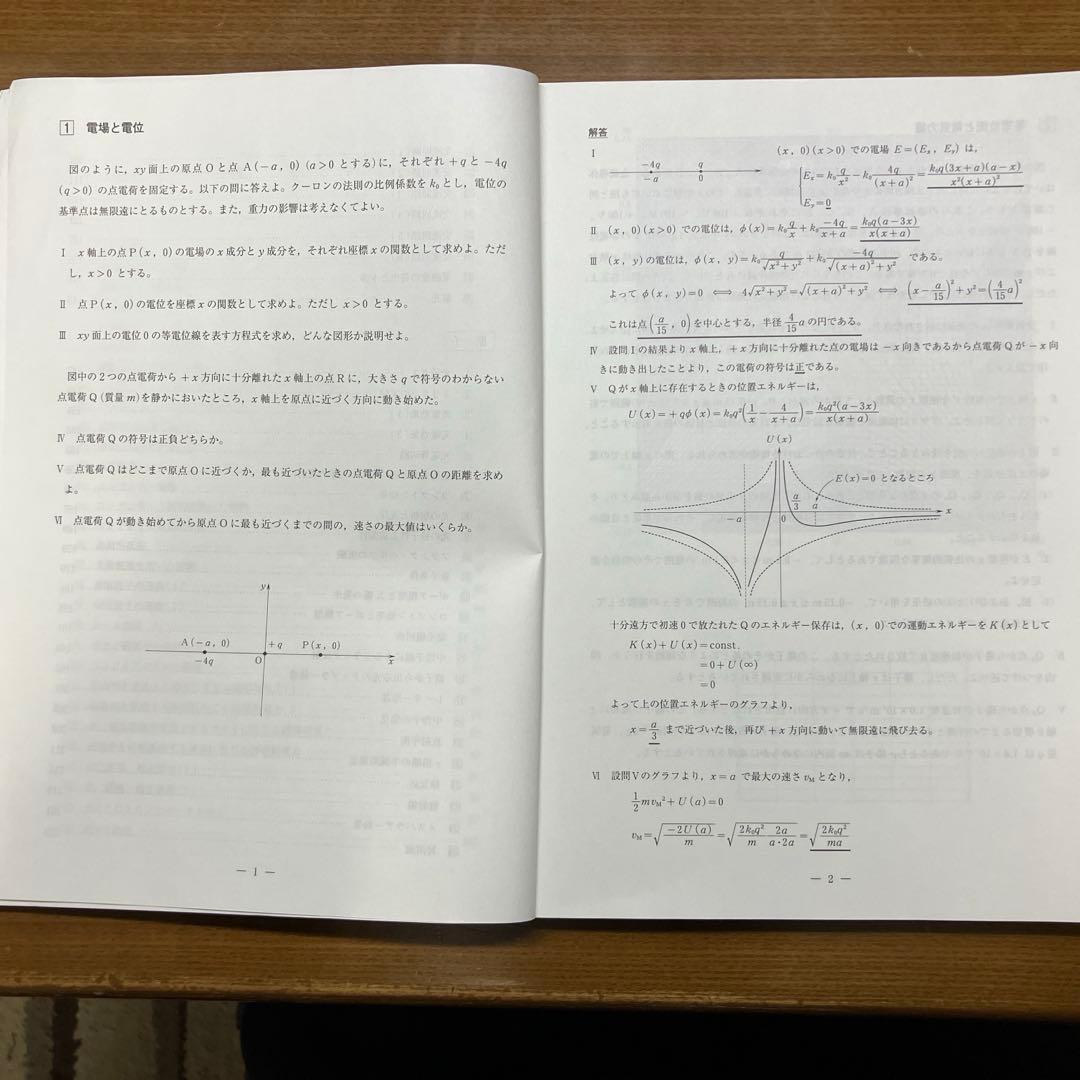 1 電場と電位
図のように，xy面上の原点Oと点A(−a, 0) (a>0とする)に，それぞれ+qと−4q
(q>0)の点電荷を固定する。以下の問に答えよ。クーロンの法則の比例係数をk₀とし，電位の
基準点は無限遠にとるものとする。また，重力の影響は考えなくてよい。
Ⅰ x軸上の点P(x, 0)の電場のx成分とy成分を，それぞれ座標xの関数として求めよ。ただ
し，x>0とする。
Ⅱ 点P(x, 0)の電位を座標xの関数として求めよ。ただしx>0とする。
Ⅲ xy面上の電位0の等電位線を表す方程式を求め，どんな図形か説明せよ。
図中の2つの点電荷から+x方向に十分離れたx軸上の点Rに，大きさqで符号のわからない
点電荷Q(質量m)を静かにおいたところ，x軸上を原点に近づく方向に動き始めた。
Ⅳ 点電荷Qの符号は正負どちらか。
Ⅴ 点電荷Qはどこまで原点Oに近づくか，最も近づいたときの点電荷Qと原点Oの距離を求め
よ。
Ⅵ 点電荷Qが動き始めてから原点Oに最も近づくまでの間の，速さの最大値はいくらか。
y
A(−a, 0) +q P(x, 0)
−4q O x
— 1 —
解答
Ⅰ (x, 0)(x>0)での電場E=(Eₓ, Eᵧ)は，
−4q q
−a 0
Eₓ=k₀ q/x² − k₀ 4q/(x+a)² = k₀q(3x+a)(a−x)/x²(x+a)²
Eᵧ=0
Ⅱ (x, 0)(x>0)での電位は，φ(x)=k₀ q/x + k₀ −4q/(x+a) = k₀q(a−3x)/x(x+a)
Ⅲ (x, y)の電位は，φ(x, y)=k₀ q/√(x²+y²) + k₀ −4q/√((x+a)²+y²) である。
よってφ(x, y)=0 ⟺ 4√(x²+y²)=√((x+a)²+y²) ⟺ (x−a/15)²+y²=(4/15 a)²
これは点(a/15, 0)を中心とする，半径 4/15 a の円である。
Ⅳ 設問Ⅰの結果よりx軸上，+x方向に十分離れた点の電場は−x向きであるから点電荷Qが−x向
きに動き出したことより，この電荷の符号は正である。
Ⅴ Qがx軸上に存在するときの位置エネルギーは，
U(x)=+qφ(x)=k₀q²(1/x − 4/(x+a))=k₀q²(a−3x)/x(x+a)
U(x)
E(x)=0となるところ
−a 0 a/3 a x
十分遠方で初速0で放たれたQのエネルギー保存は，(x, 0)での運動エネルギーをK(x)として
K(x)+U(x)=const.
=0+U(∞)
=0
よって上の位置エネルギーのグラフより，
x=a/3 まで近づいた後，再び+x方向に動いて無限遠に飛び去る。
Ⅵ 設問Ⅴのグラフより，x=aで最大の速さv_Mとなり，
1/2 mv_M²+U(a)=0
v_M=√(−2U(a)/m)=√(2k₀q²/m · 2a/a·2a)=√(2k₀q²/ma)
— 2 —